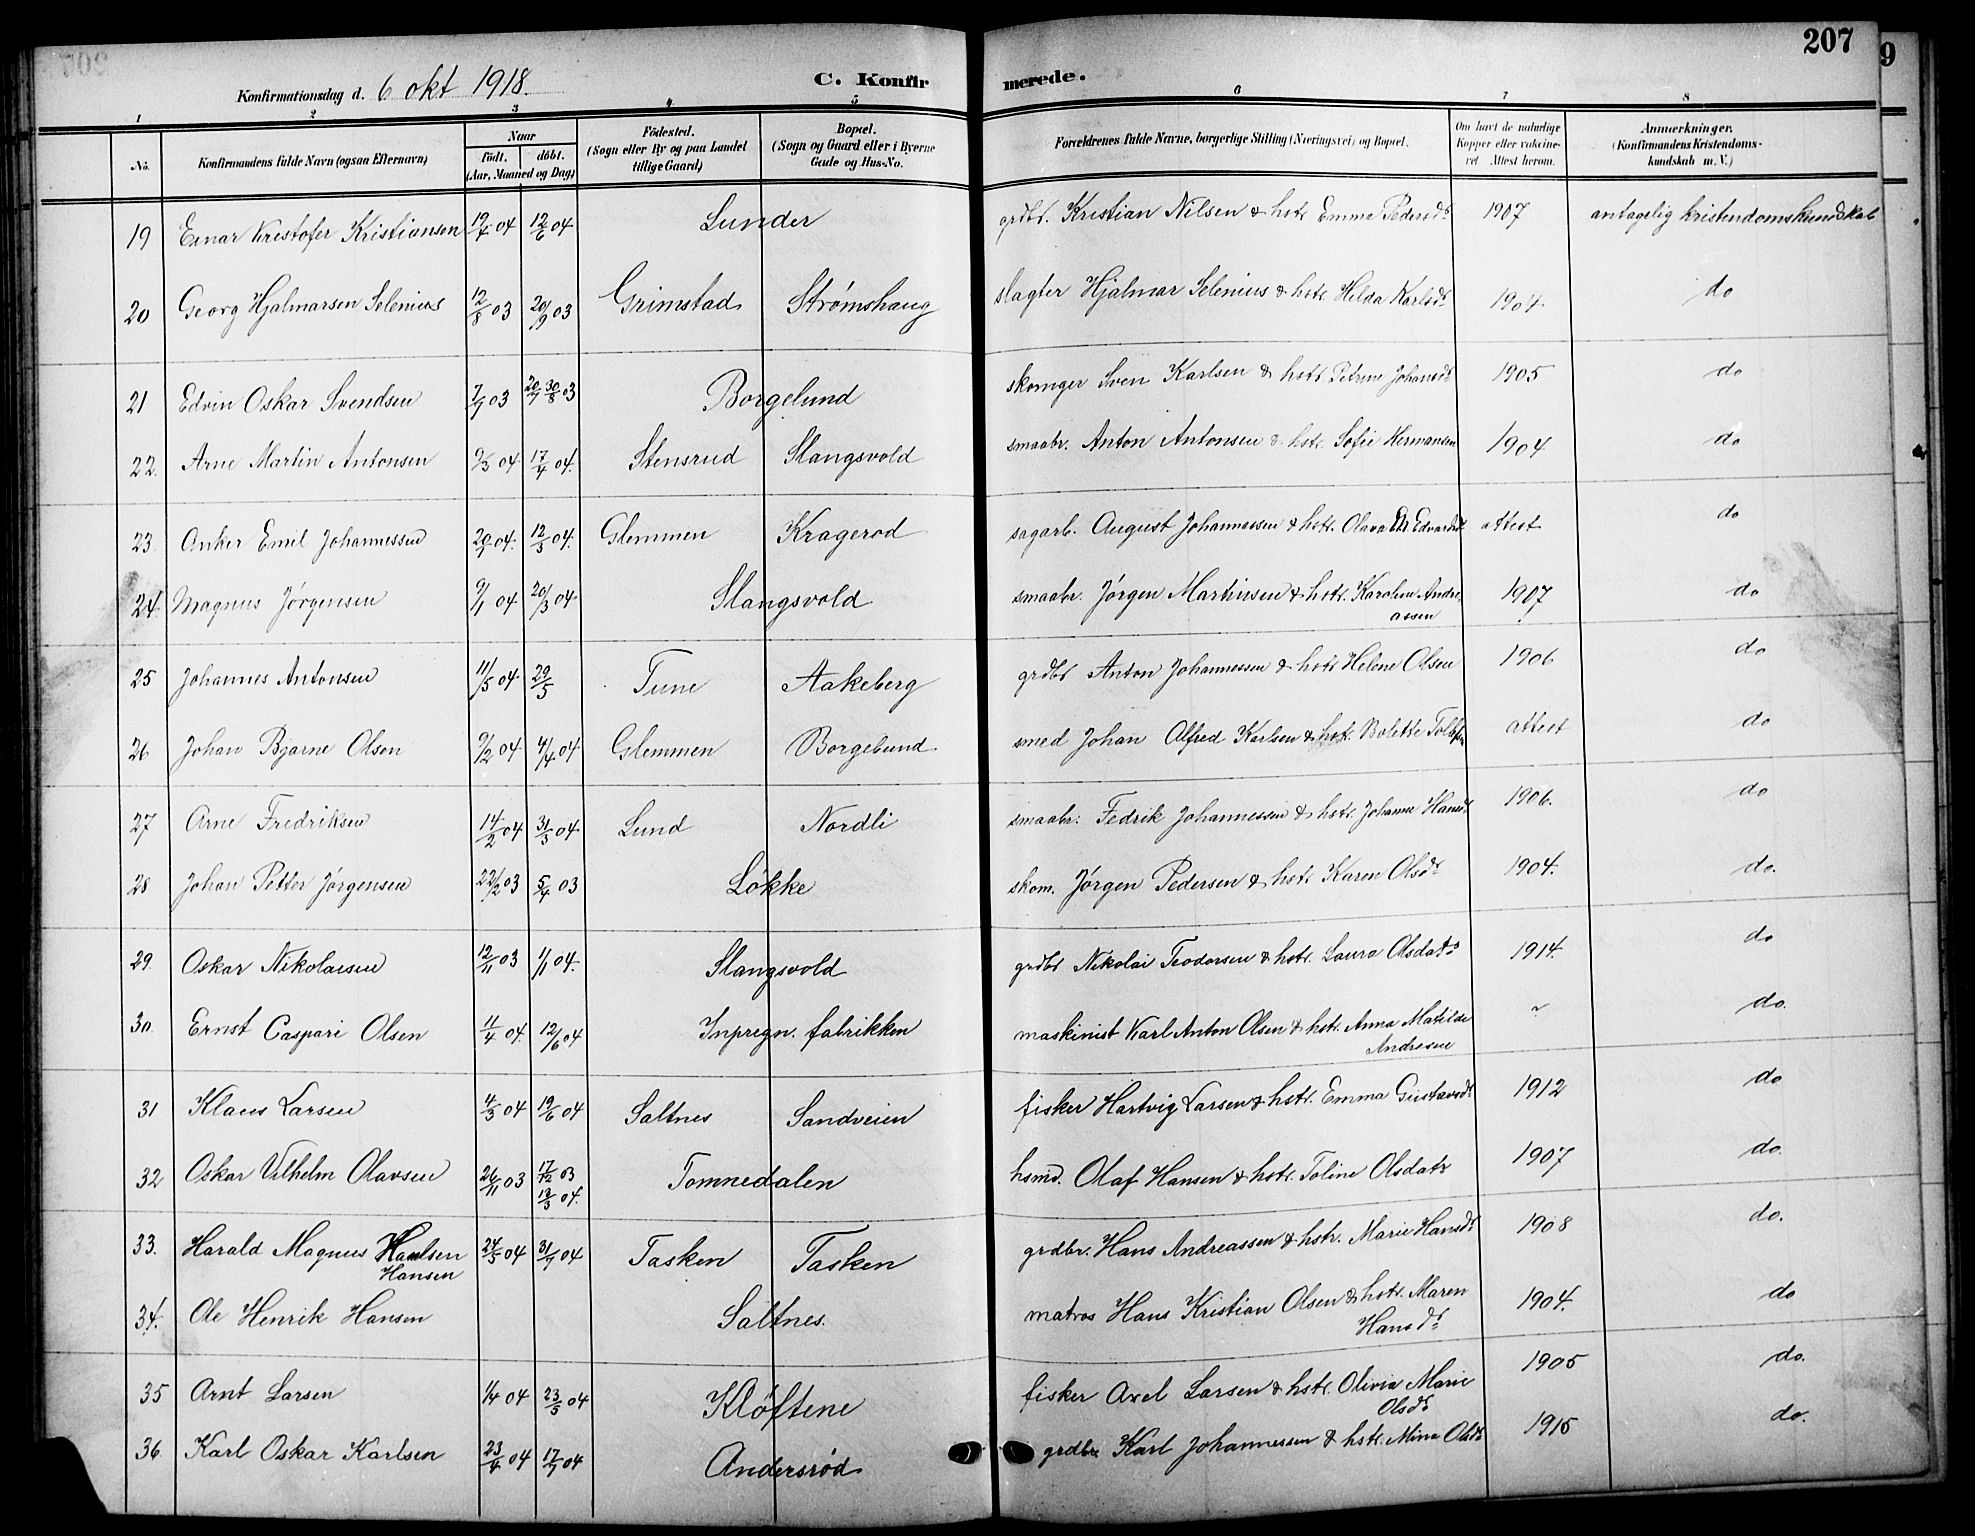 207
9
Konfirmationsdag d. 6 okt 1918.
C. Konfirmerede.
1 2 3 4 5 6 7 8
No.
Konfirmandens fulde Navn (ogsaa Efternavn)
Naar
født. døbt.
(Aar, Maaned og Dag)
Fødested.
(Sogn eller By og paa Landet
tillige Gaard)
Bopæl.
(Sogn og Gaard eller i Byerne
Gade og Hus-No.
Forældrenes fulde Navne, borgerlige Stilling (Næringsvei) og Bopæl.
Om havt de naturlige
Kopper eller vaccine-
ret Attest herom.
Anmærkninger.
(Konfirmandens Kristendoms-
kundskab m. V.)
19 Einar Kristofer Kristiansen 19/4 04 12/6 04 Lunder grdbr. Kristian Nilsen & hstr Emma Pedersdr 1907 antagelig kristendomskundskab
20 Georg Hjalmarsen Selenius 12/8 03 20/9 03 Grimstad Strømshaug slagter Hjalmar Selenius & hstr. Hilda Karlsdr 1904. do
21 Edvin Oskar Svendsen 7/7 03 30/8 03 Borgelund skomger Sven Karlsen & hstr. Petrine Johansdr 1905 do
22. Arne Martin Antonsen 9/3 04 17/4 04. Stensrud Slangsvold smaabr. Anton Antonsen & hstr. Sofie Hermansen 1904 do
23. Anker Emil Johannessen 04. 12/3 04. Glemmen Kragerød sagarb. August Johannessen & hstr. Olava attest do
24. Magnus Jørgensen 9/1 04 20/3 04. Slangsvold smaabr. Jørgen Martinsen & hstr. Karoline Andre-
assen 1907 do
25 Johannes Antonsen 11/5 04 29/5 Tune Aakeberg grdbr Anton Johannessen & hstr Helene Olsen 1906 do
26 Johan Bjarne Olsen 9/2 04 4/4 04 Glemmen Borgelund smed Johan Alfred Karlsen & hstr. Bolette attest do
27 Arne Fredriksen 14/2 04 31/3 04. Lund Nordli smaabr. Fedrik Johannessen & hstr. Johanne Hansdr 1906. do
28 Johan Petter Jørgensen 22/2 03 5/4 03 Løkke skom. Jørgen Pedersen & hstr Karen Olsdr 1904. do.
29. Oskar Nikolaisen 12/11 03 1/1 04. Slangsvold grdbr Nikolai Teodorsen & hstr. Laura Olsdatr 1914. do
30. Ernst Caspari Olsen 11/4 04. 12/6 04 Inpregn. fabrikken maskinist Karl Anton Olsen & hstr. Anna Matilde
Andresen ~ do.
31 Klaus Larsen 4/3 04 19/6 04 Saltnes Sandveien fisker Hartvig Larsen & hstr. Emma Gustavsdr 1912 do
32 Oskar Vilhelm Olavsen 26/11 03 17/12 03
13/3 04. Tomnedalen hsmd. Olaf Hansen & hstr. Toline Olsdatr 1907 do.
33. Harald Magnus
Hansen 24/5 04 31/9 04 Tasken Tasken grdbr. Hans Andreassen & hstr. Marie Hansdr 1908 do.
34. Ole Henrik Hansen Saltnes. matros Hans Kristian Olsen & hstr. Maren
Hansdr 1904. do
35 Arnt Larsen 1/4 04 23/5 04 Kløftene fisker Axel Larsen & hstr. Olivia Marie
Olsdr 1905 do.
36 Karl Oskar Karlsen 23/4 04 17/7 04 Andersrød grdbr Karl Johannessen & hstr. Mina Olsdr 1915 do.